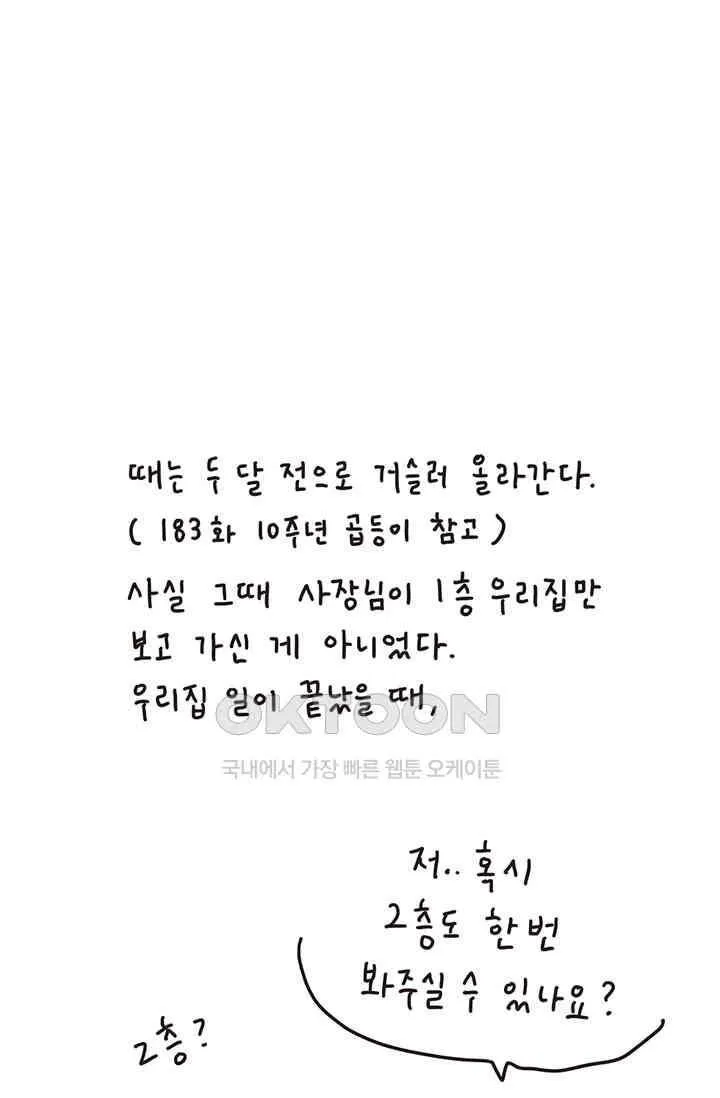 때는 두 달 전으로 거슬러 올라간다.
( 183화 10주년 곱등이 참고 )
사실 그때 사장님이 1층 우리집만
보고 가신 게 아니었다.
우리집 일이 끝났을 때,
OKTOON
국내에서 가장 빠른 웹툰 오케이툰
저.. 혹시
2층도 한번
봐주실 수 있나요?
2층?